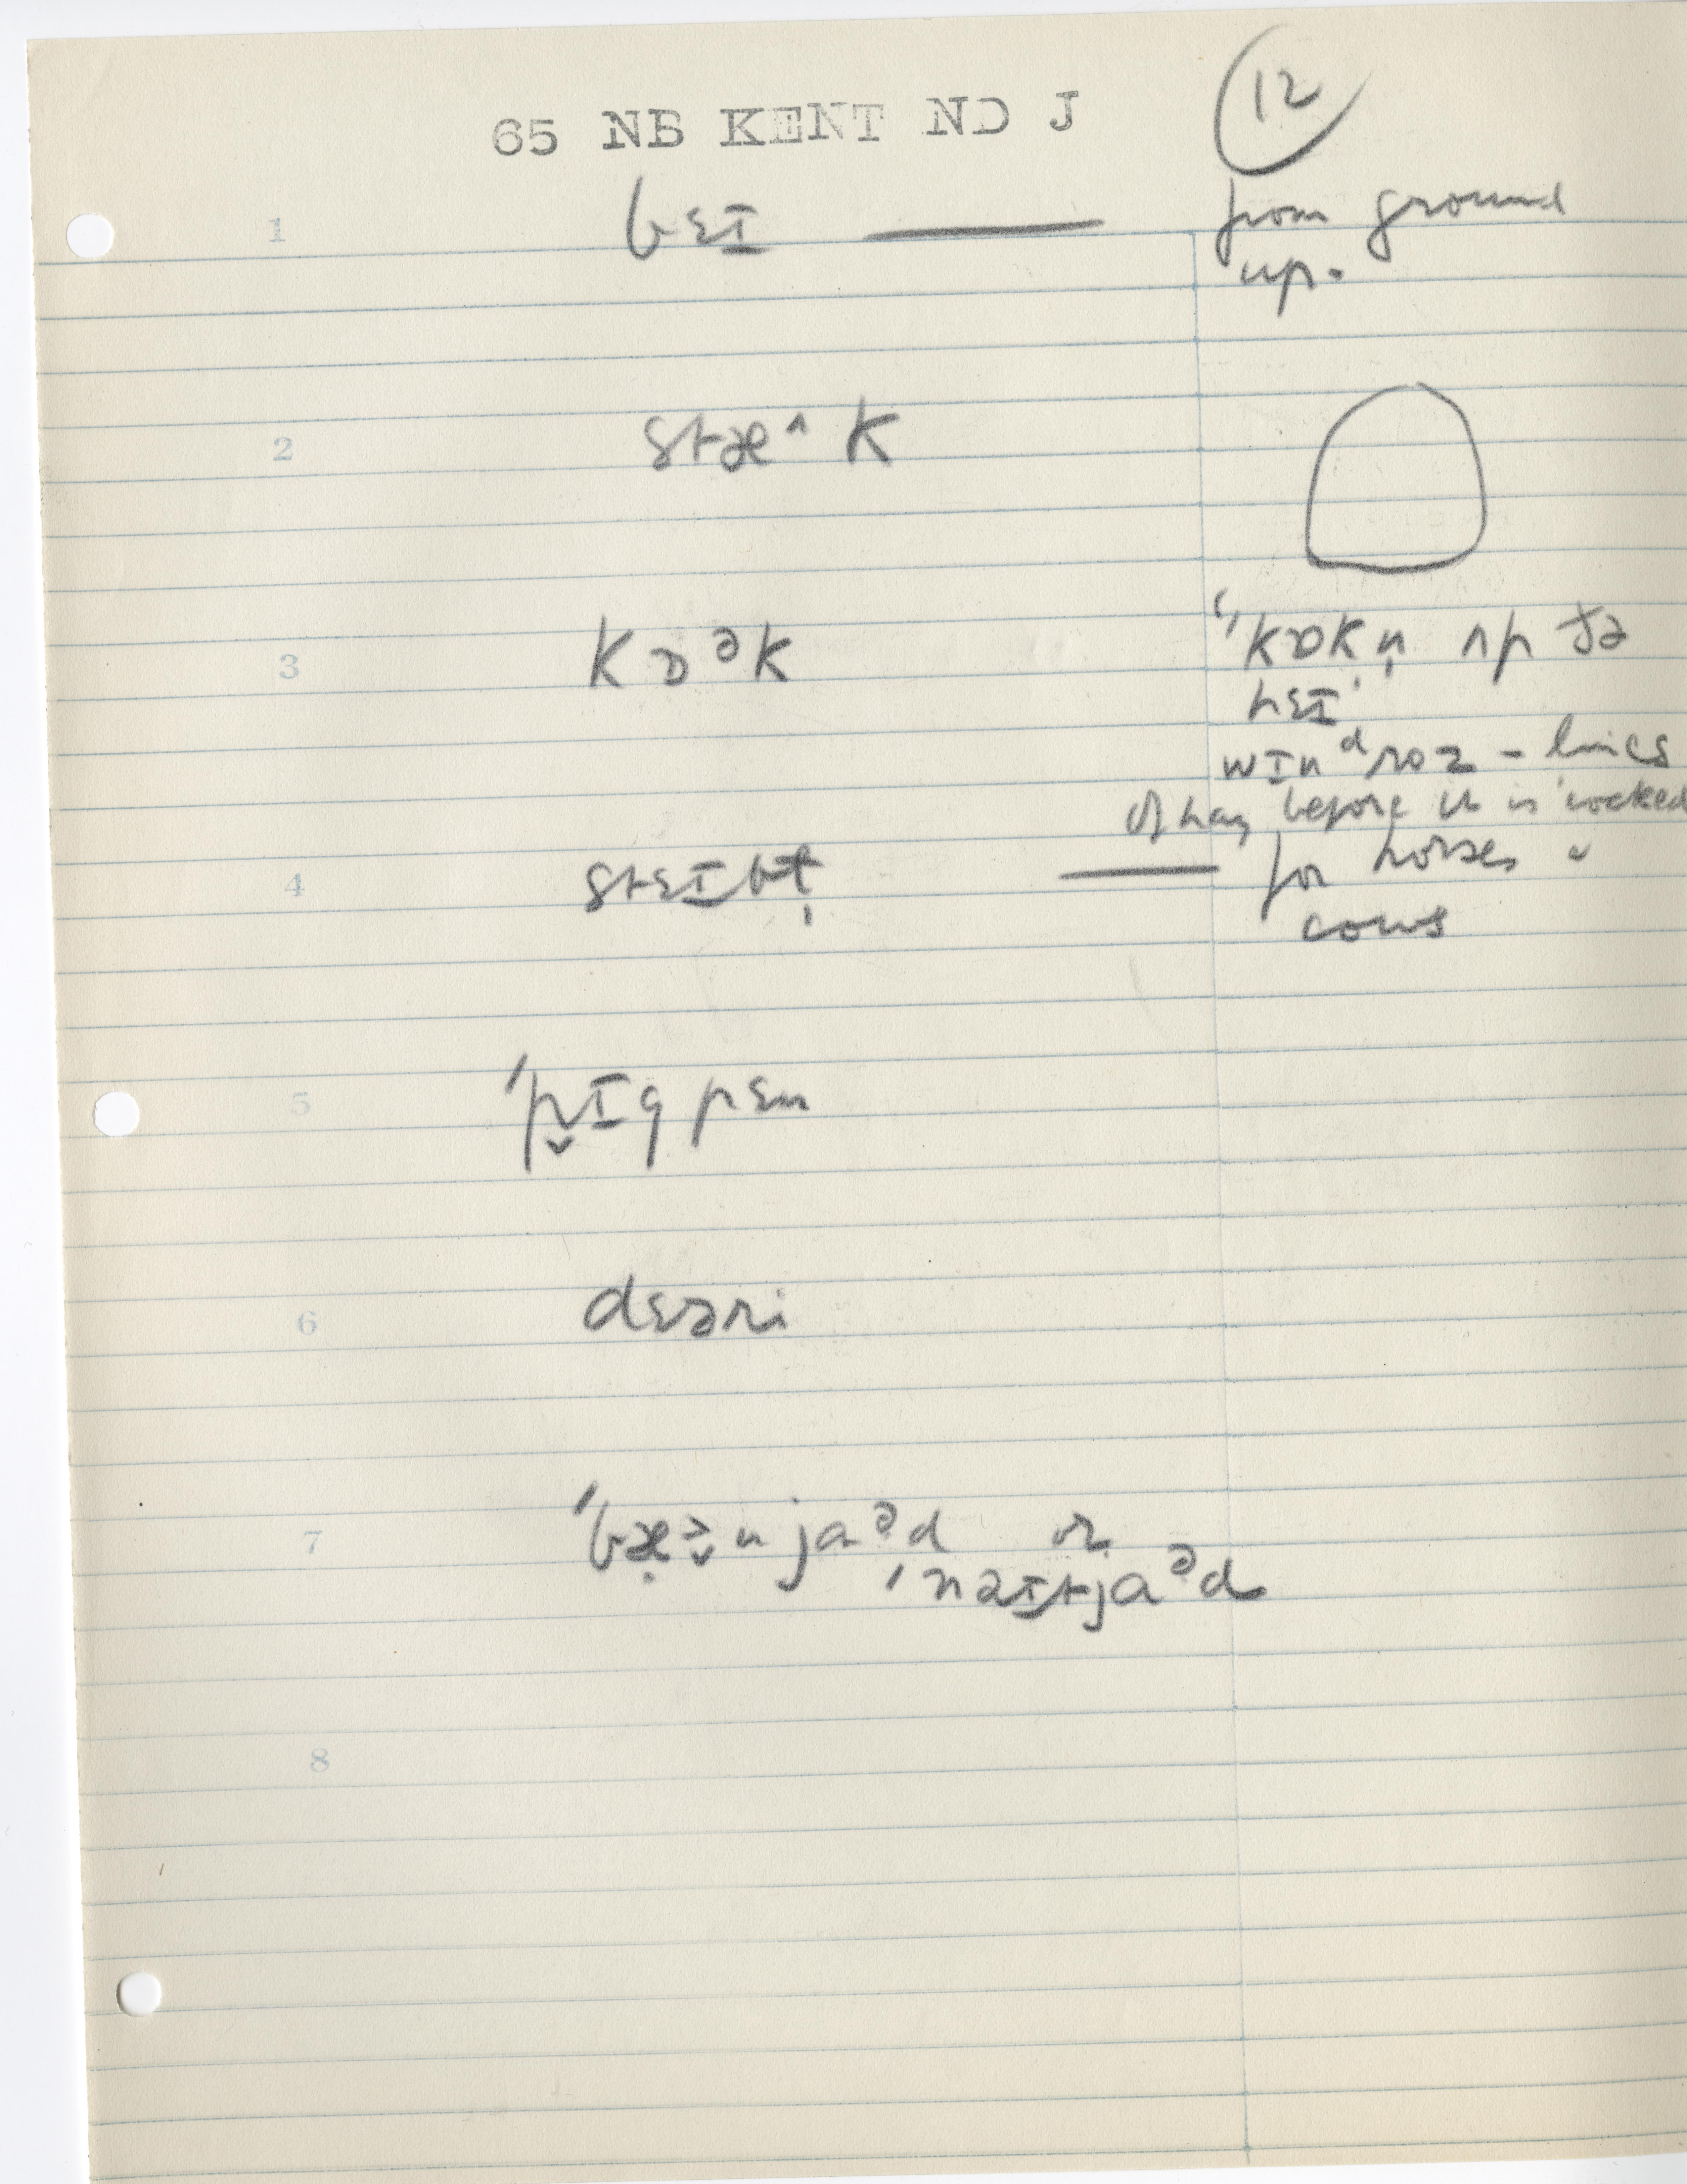 65 NB KENT ND J
12
1 bɛɪ — from ground
up.
2 stæ^k
3 kɒᵊk 'kɒkn̩ ʌp ðə
hɛɪ'
wɪnᵈroz - lines
of hay before it is 'cocked
4 stɛɪbɫ̩ — for horses
cows
5 ˈp̬ɪg pɛn
6 dɛəri
7 ˈbæ̣ə̬n jaᵊd or
ˈnaɪtjaᵊd
8